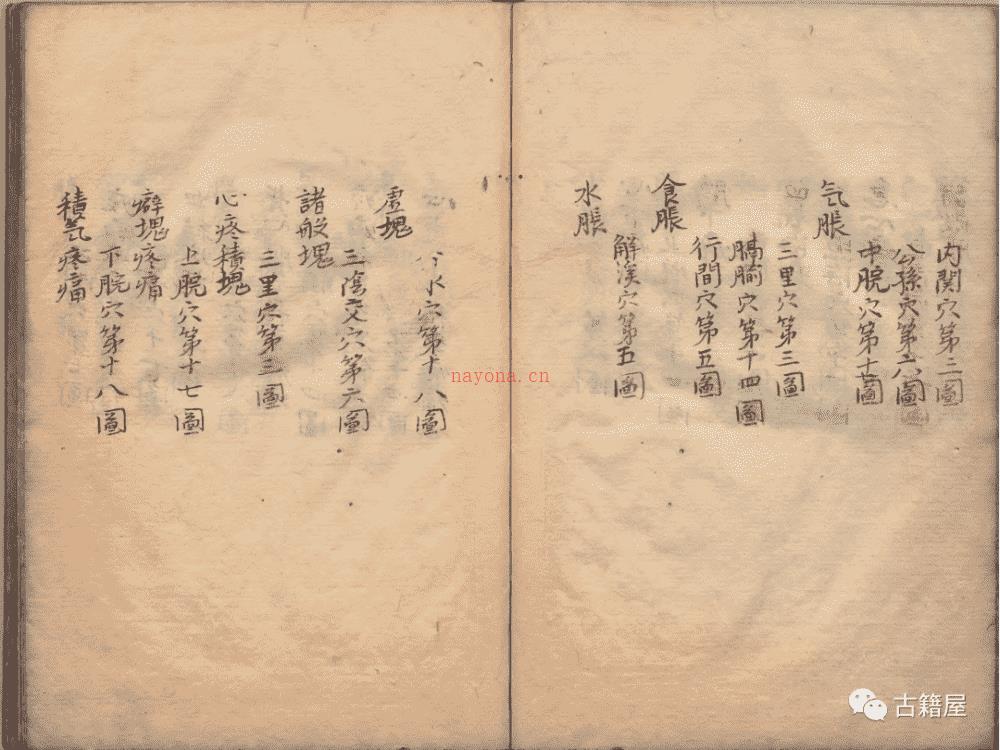 内関穴第二圖
公孫穴第六圖
中脘穴第圖
气脹
三里穴第三圖
膈腧穴第十四圖
行間穴第五圖
食脹
解溪穴第五圖
水脹
水穴第十八圖
虚塊
三陰交穴第六圖
諸般塊
三里穴第三圖
心疼積塊
上脘穴第十七圖
癖塊疼痛
下脘穴第十八圖
積气疼痛
nayona.cn
古籍屋